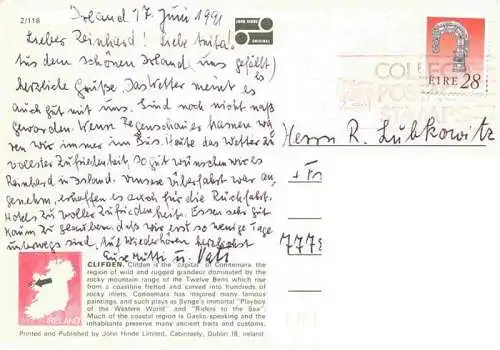 2/118
JOHN HINDE
ORIGINAL
Irland 17. Juni 1991
Lieber Reinhard! Liebe Anita!
Aus dem schönen Irland (uns gefällt es)
herzliche Grüße. Das Wetter meint es
auch gut mit uns. Sind noch nicht naß
geworden. Wenn Regenschauer kamen wa-
ren wir immer im Bus. Heute das Wetter zu
vollster Zufriedenheit. So gut wünschen wir es
Reinhard in Irland. Unsere Überfahrt war an-
genehm, erhoffen es auch für die Rückfahrt.
Hotels zu voller Zufriedenheit. Essen sehr gut
Kaum zu glauben, daß wir erst so wenige Tage
unterwegs sind. Auf Wiederhören herzlichst
Eure Mutti u. Vati
COLLECT
POSTAGE
STAMPS
ÉIRE 28
Herrn R. Lubkowitz
+
777
CLIFDEN. Clifden is the "capital" of Connemara, the
region of wild and rugged grandeur dominated by the
rocky mountain range of the Twelve Bens which rise
from a coastline fretted and carved into hundreds of
rocky inlets. Connemara has inspired many famous
paintings, and such plays as Synge's immortal "Playboy
of the Western World" and "Riders to the Sea".
Much of the coastal region is Gaelic-speaking and the
inhabitants preserve many ancient traits and customs.
IRELAND
Printed and Published by John Hinde Limited, Cabinteely, Dublin 18, Ireland